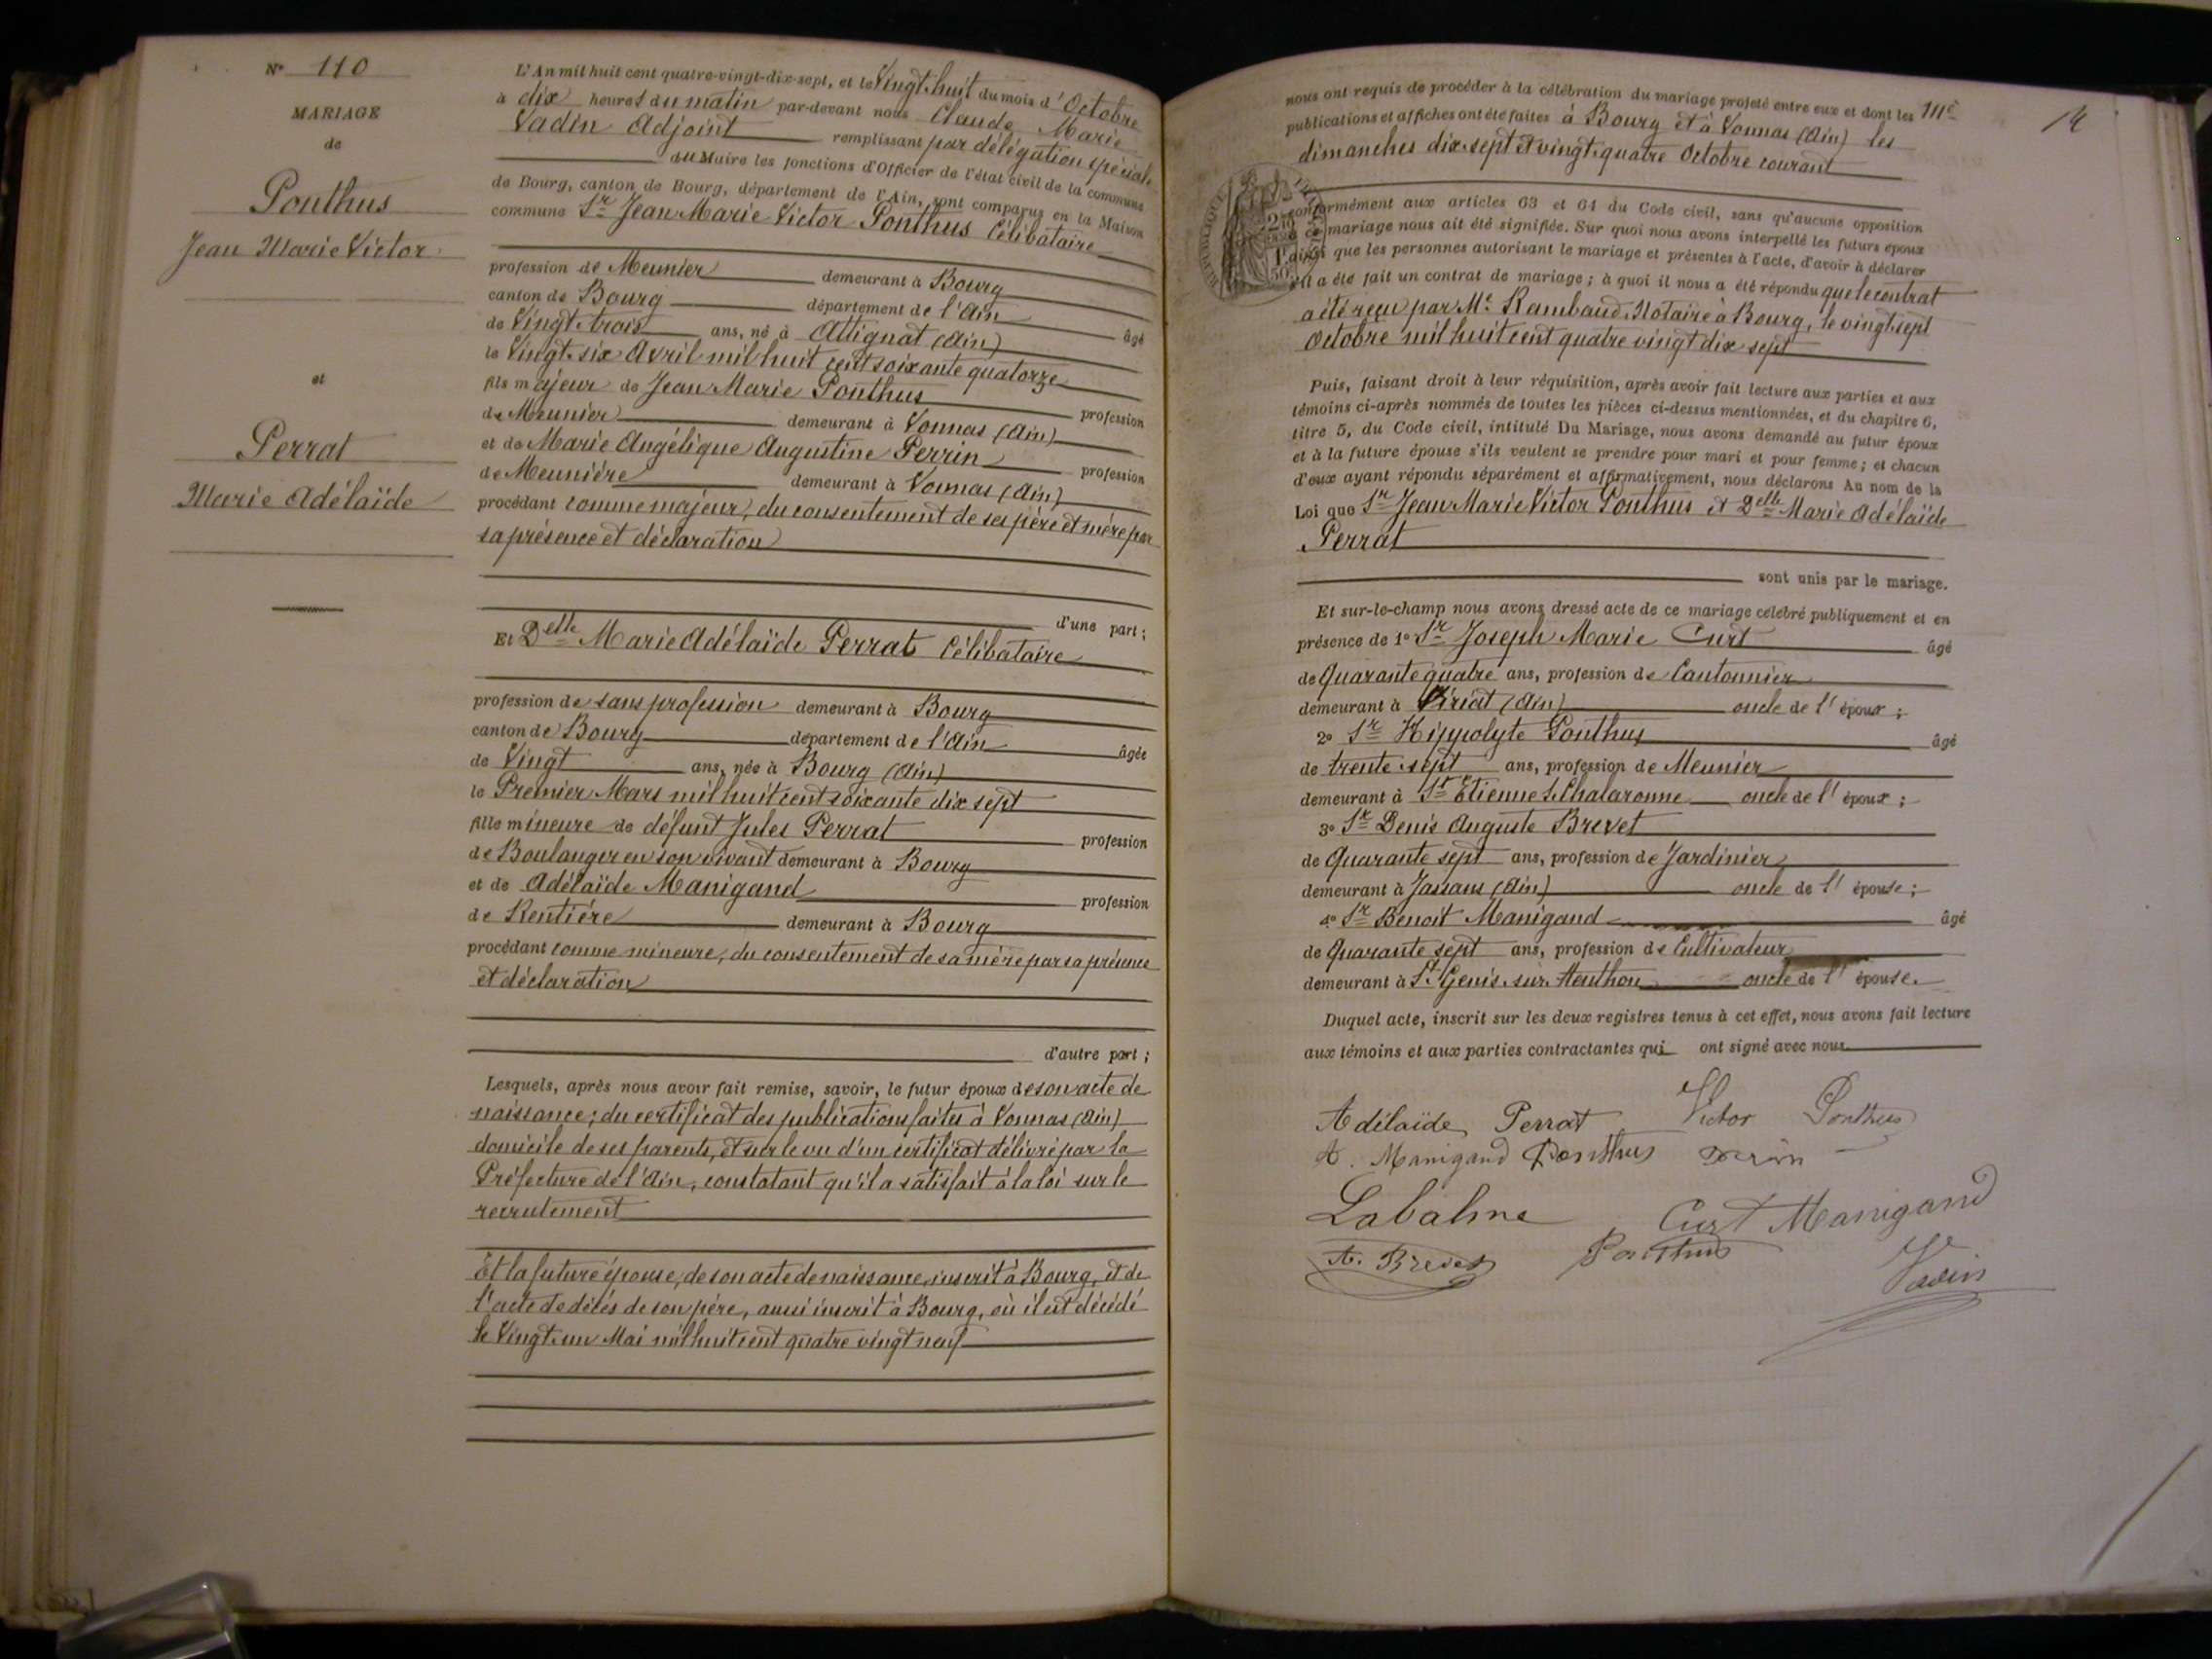 N° 110
MARIAGE
de
Ponthus
Jean Marie Victor
et
Perrat
Marie Adélaïde
L'An mil huit cent quatre-vingt-dix-sept, et le Vingt-huit du mois d'Octobre
à dix heures du matin par-devant nous Claude Marie
Vadin Adjoint remplissant par délégation spéciale
du Maire les fonctions d'Officier de l'état civil de la commune
de Bourg, canton de Bourg, département de l'Ain, sont comparus en la Maison
commune Sr Jean Marie Victor Ponthus Célibataire
profession de Meunier demeurant à Bourg
canton de Bourg département de l'Ain
de Vingt-trois ans, né à Attignat (Ain) âgé
le Vingt-six Avril mil huit cent soixante quatorze
fils majeur de Jean Marie Ponthus profession
de Meunier demeurant à Vonnas (Ain)
et de Marie Angélique Augustine Perrin profession
de Meunière demeurant à Vonnas (Ain)
procédant comme majeur, du consentement de ses père et mère par
sa présence et déclaration
d'une part ;
Et Delle Marie Adélaïde Perrat Célibataire
profession de sans profession demeurant à Bourg
canton de Bourg département de l'Ain
de Vingt ans, née à Bourg (Ain) âgée
le Premier Mars mil huit cent soixante dix sept
fille mineure de défunt Jules Perrat profession
de Boulanger en son vivant demeurant à Bourg
et de Adélaïde Manigand profession
de Rentière demeurant à Bourg
procédant comme mineure, du consentement de sa mère par sa présence
et déclaration
d'autre part ;
Lesquels, après nous avoir fait remise, savoir, le futur époux de son acte de
naissance ; du certificat des publications faites à Vonnas (Ain)
domicile de ses parents, et sur le vu d'un certificat délivré par la
Préfecture de l'Ain, constatant qu'il a satisfait à la loi sur le
recrutement
Et la future épouse, de son acte de naissance, inscrit à Bourg, et de
l'acte de décès de son père, aussi inscrit à Bourg, où il est décédé
le Vingt-un Mai mil huit cent quatre vingt neuf
nous ont requis de procéder à la célébration du mariage projeté entre eux et dont les
publications et affiches ont été faites à Bourg et à Vonnas (Ain) les
dimanches dix-sept et vingt-quatre Octobre courant
conformément aux articles 63 et 64 du Code civil, sans qu'aucune opposition
mariage nous ait été signifiée. Sur quoi nous avons interpellé les futurs époux
ainsi que les personnes autorisant le mariage et présentes à l'acte, d'avoir à déclarer
s'il a été fait un contrat de mariage ; à quoi il nous a été répondu que le contrat
a été reçu par Me Rambaud, Notaire à Bourg, le vingt-sept
Octobre mil huit cent quatre vingt dix sept
Puis, faisant droit à leur réquisition, après avoir fait lecture aux parties et aux
témoins ci-après nommés de toutes les pièces ci-dessus mentionnées, et du chapitre 6,
titre 5, du Code civil, intitulé Du Mariage, nous avons demandé au futur époux
et à la future épouse s'ils veulent se prendre pour mari et pour femme ; et chacun
d'eux ayant répondu séparément et affirmativement, nous déclarons Au nom de la
Loi que Sr Jean Marie Victor Ponthus et Delle Marie Adélaïde
Perrat
sont unis par le mariage.
Et sur-le-champ nous avons dressé acte de ce mariage célébré publiquement et en
présence de 1° Sr Joseph Marie Curt âgé
de Quarante quatre ans, profession de Cantonnier
demeurant à Viriat (Ain) oncle de l'époux ;
2° Sr Hippolyte Ponthus âgé
de trente-sept ans, profession de Meunier
demeurant à St Etienne s. Chalaronne oncle de l'époux ;
3° Sr Denis Auguste Brevet
de Quarante sept ans, profession de Jardinier
demeurant à Jassans (Ain) oncle de l'épouse ;
4° Sr Benoit Manigand âgé
de Quarante sept ans, profession de Cultivateur
demeurant à St Genis-sur-Menthon oncle de l'épouse.
Duquel acte, inscrit sur les deux registres tenus à cet effet, nous avons fait lecture
aux témoins et aux parties contractantes qui ont signé avec nous
Adélaïde Perrat Victor Ponthus
A. Manigand Ponthus
Labalme Curt Manigand
A. Brevet Ponthus
Vadin